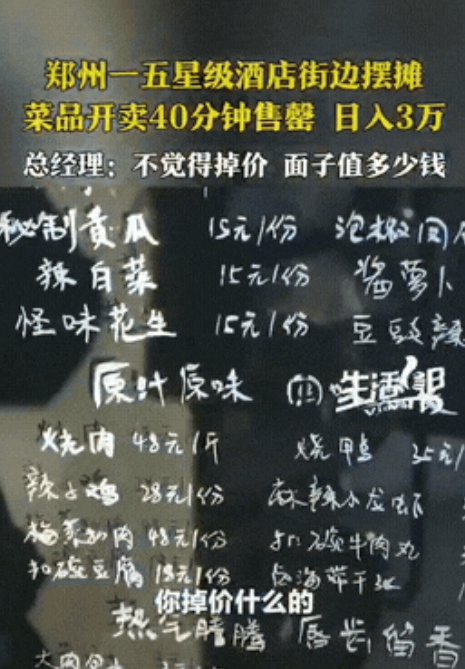 郑州一五星级酒店街边摆摊
菜品开卖40分钟售罄 日入3万
总经理：不觉得掉价 面子值多少钱
秘制黄瓜 15元/份 泡椒
辣白菜 15元/份 酱萝卜
怪味花生 15元/份 豆豉辣
原汁原味
烧肉 48元/斤 烧鸭 35元/
辣子鸡 28元/份 麻辣小龙虾
梅菜扣肉 48元/份 牛肉丸
扣碗豆腐 18元/份 海带干
你掉价什么的
热气腾腾 唇齿留香